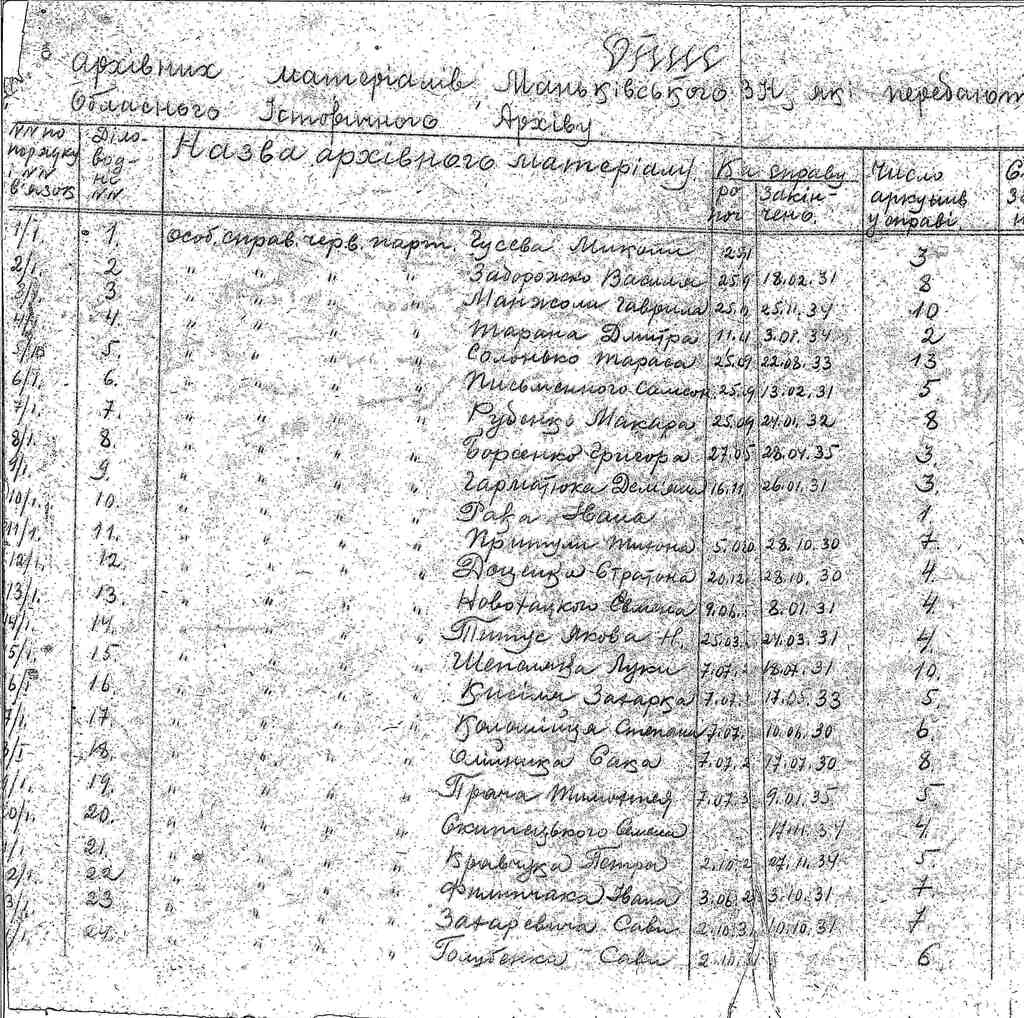 Опис
архівних матеріалів Маньківського ЗН, які передают
Обласного Історичного Архіву.
NN по порядку і NN в'язок Діло-вод-не NN Назва архівного матеріалу. Ка справу Число аркушів у справі
ро поч Закін-чено.
1/1. 1. особ. справ. черв. парт. Гусєва Миколи 3
2/1. 2 " " " " Заборожко Василя 25.9 18.02.31 8
3 " " " " Манжоли Гаврила 25.11.34 10
4. " " " " Тарана Дмитра 11.11 3.01.34 2
5. " " " " Солонько Тараса 25.09 22.03.33 13
6/1. 6. " " " " Письменного 25.9 13.02.31 5
7/1. 7. " " " " Рубенко Макара 25.09 24.01.32 8
8/1. 8. " " " " Борсенко Григора 27.05 28.04.35 3.
9/1. 9. " " " " Гарматюка Дем'яна 16.11 26.01.31 3.
10/1. 10. " " " " Рака Івана 1
11/1. 11. " " " " Притули 28.10.30 7.
12/1. 12. " " " " Доценка Стратона 28.10.30 4.
13/1. 13. " " " " Новохацкого Семена 9.06. 8.01.31 4
14/1. 14. " " " " Титус Якова Н. 25.03. 24.03.31 4.
5/1. 15. " " " " Луки 7.07.2 18.07.31 10.
6/1 16. " " " " Кисіля Захарка 7.07. 17.05.33 5.
7/1. 17. " " " " Коломійця Степана 7.07. 10.06.30 6.
18. " " " " Олійника Сака 7.07.2 17.07.30 8.
19. " " " " Прача Тимофтея 7.07.3 9.01.35 5
20/1. 20. " " " " Скитецького Семена 17.11.34 4.
21. " " " " Кравчука Петра 2.10.2 07.11.34 5
2/1. 22 " " " " Филипчака Івана 3.06.2 3.10.31 7
3/1. 23 " " " " Захаревича Сави 2.10.3 10.10.31 7
24. " Голубенка Сави 2.10. 6